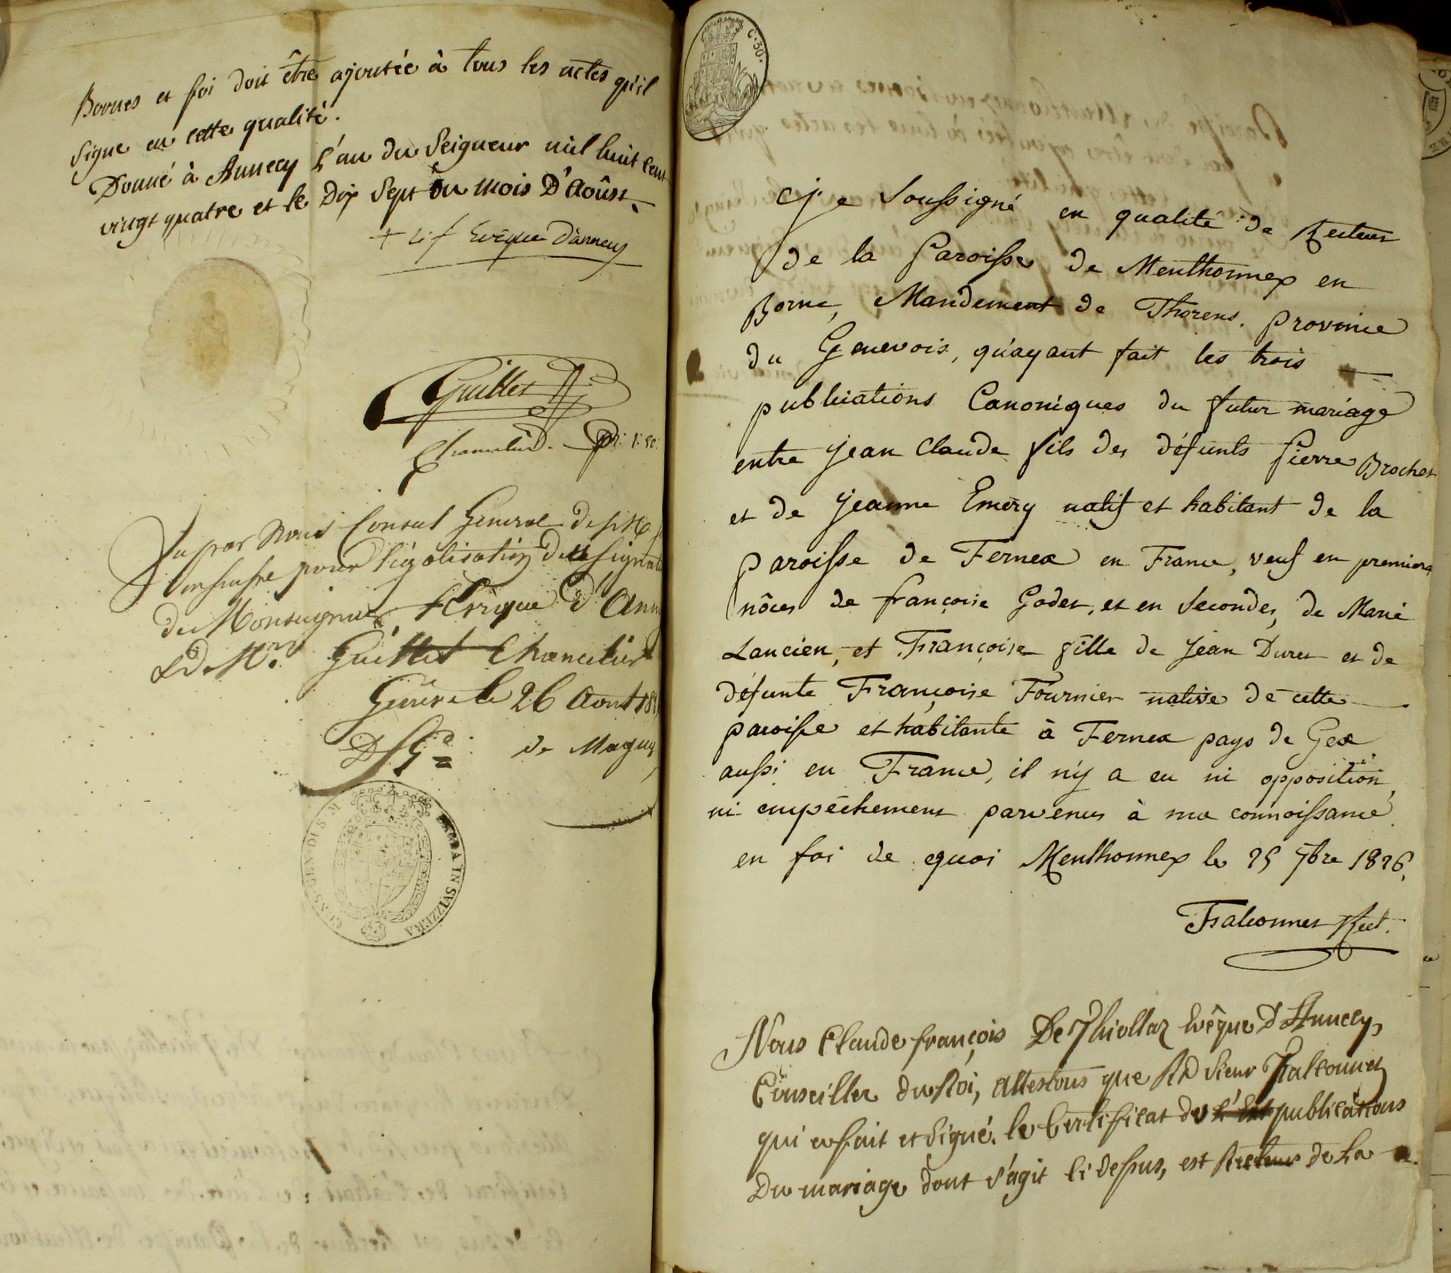 Bornes et foi doit être ajoutée à tous les actes qu'il
signe en cette qualité.
Donné à Annecy l'an du Seigneur mil huit cent
vingt quatre et le Dix Sept du mois D'Août.
+ C. f. Evêque d'annecy
Guillet
Chancelier
Vu par Nous Consul General de S. M.
pour légalisation de la Signat
de Monseigneur l'Evêque d'Anne
& de Mr. Guillet Chancelier
Genève le 26 Aout 18
de Magny
IN SVIZZERA
C. 50.
Je Soussigné en qualité de Recteur
de la Paroisse de Menthonnex en
Borne, Mandement de Thorens, province
du Genevois, qu'ayant fait les trois
publications Canoniques du futur mariage
entre Jean Claude fils des défunts Pierre Brochet
et de Jeanne Emery natif et habitant de la
paroisse de Fernex en France, veuf en premiere
nôces de françoise Godet, et en Secondes, de Marie
Lancien, et Françoise fille de Jean Duret et de
défunte Françoise Fournier native de cette
paroisse et habitante à Fernex pays de Gex
aussi en France, il n'y a eu ni opposition,
ni empêchement parvenus à ma connoissance.
en foi de quoi Menthonnex le 25 7bre 1826.
Falconnet Rect.
Nous Claude françois De Thiollaz Evêque D'Annecy,
Conseiller du Roi, attestons que Rd Sieur Falconnet
qui a fait et Signé le Certificat des publications
Du mariage dont s'agit ci dessus, est Recteur de la